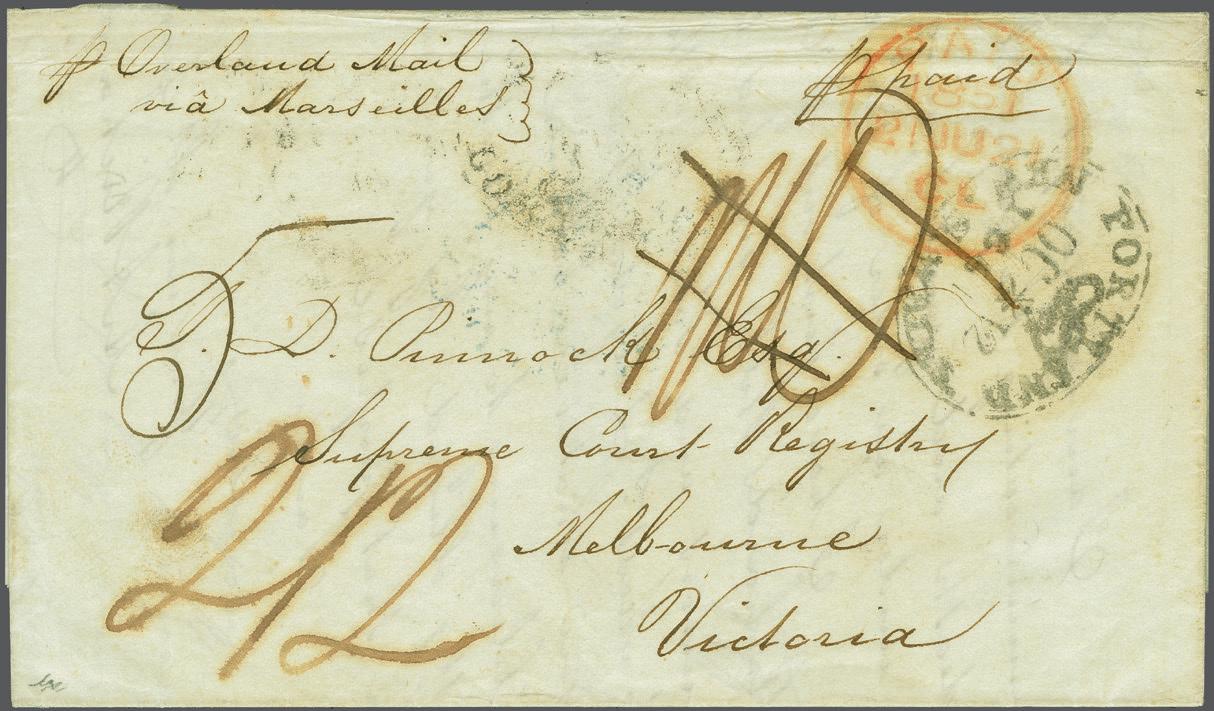 p Overland Mail
viâ Marseilles
p paid
PAID
1851
21 JU 21
CL
PORTLAND
OC
12
5
J. D. Pinnock Esq.
Supreme Court Registry
Melbourne
Victoria
2/2